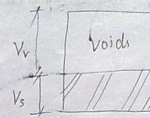 Vv
Voids
Vs